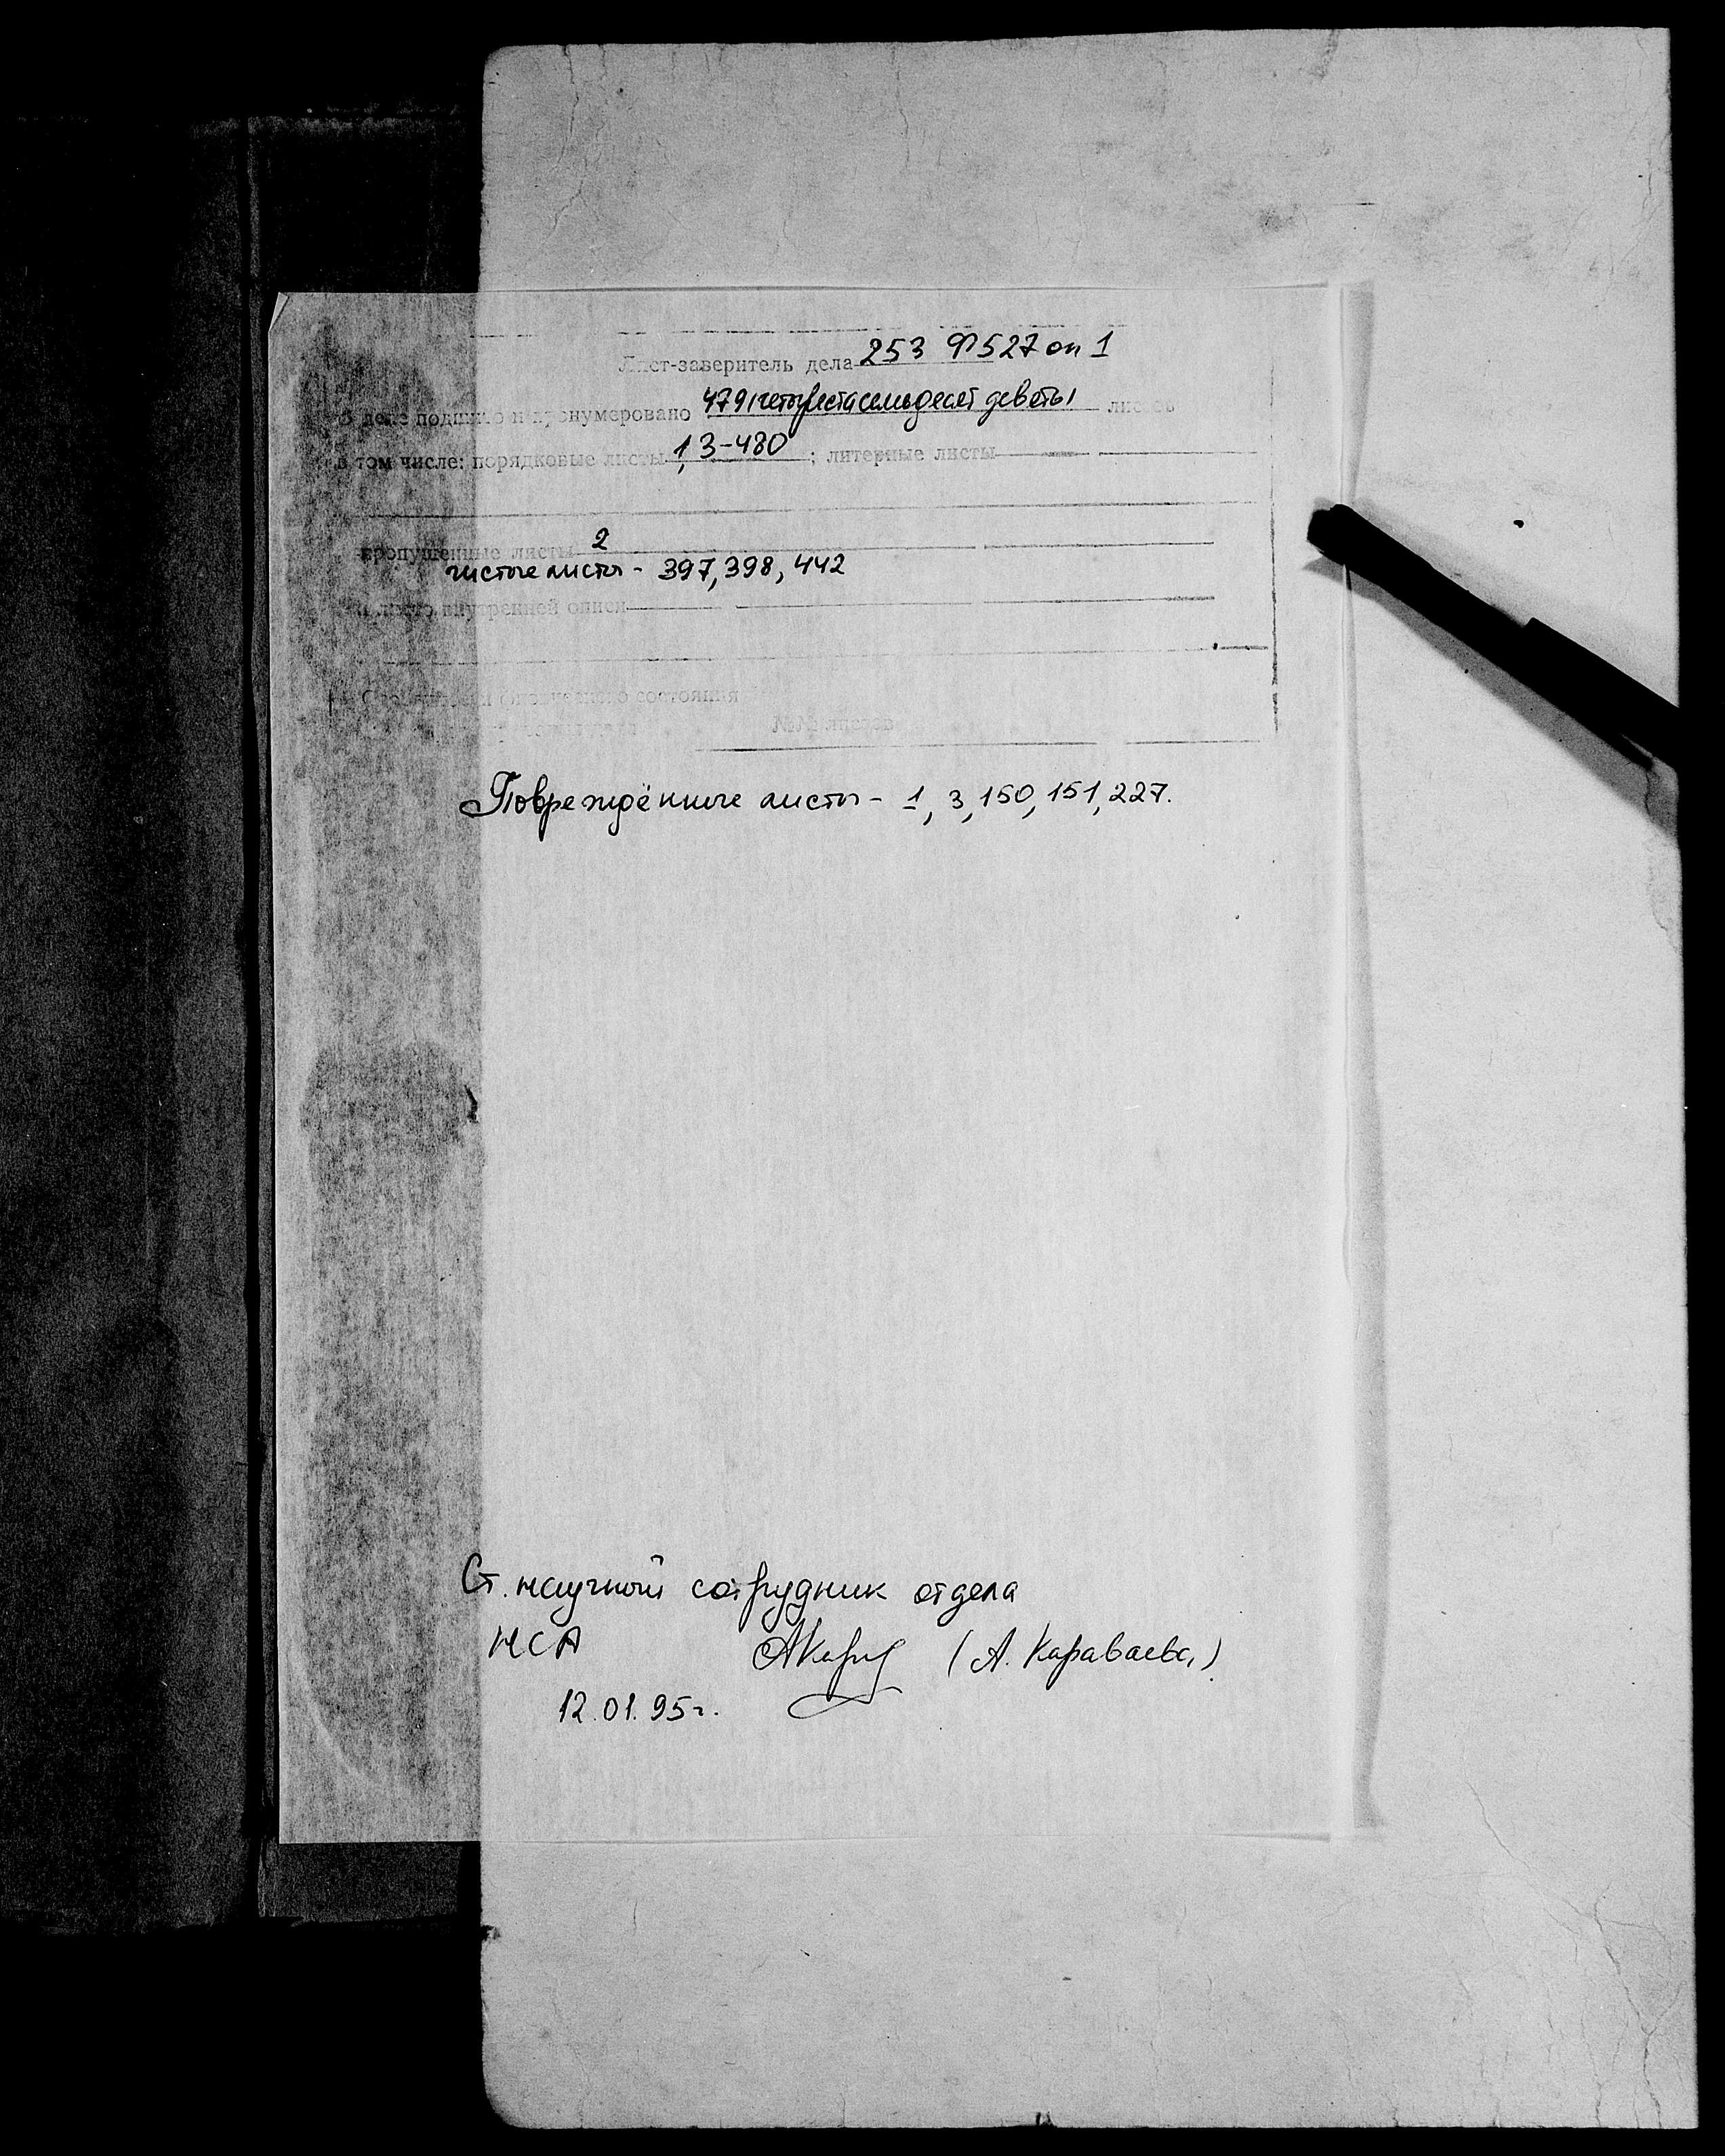 Лист-заверитель дела 253 Ф527 оп 1
В деле подшито и пронумеровано 479 (четыреста семьдесят девять) листов
в том числе: порядковые листы 1, 3-480 ; литерные листы
пропущенные листы 2
чистые листы - 397, 398, 442
листов внутренней описи
физического состояния
№№ листов
Повреждённые листы - 1, 3, 150, 151, 227.
Ст. научный сотрудник отдела
НСА (А. Караваева)
12.01.95г.